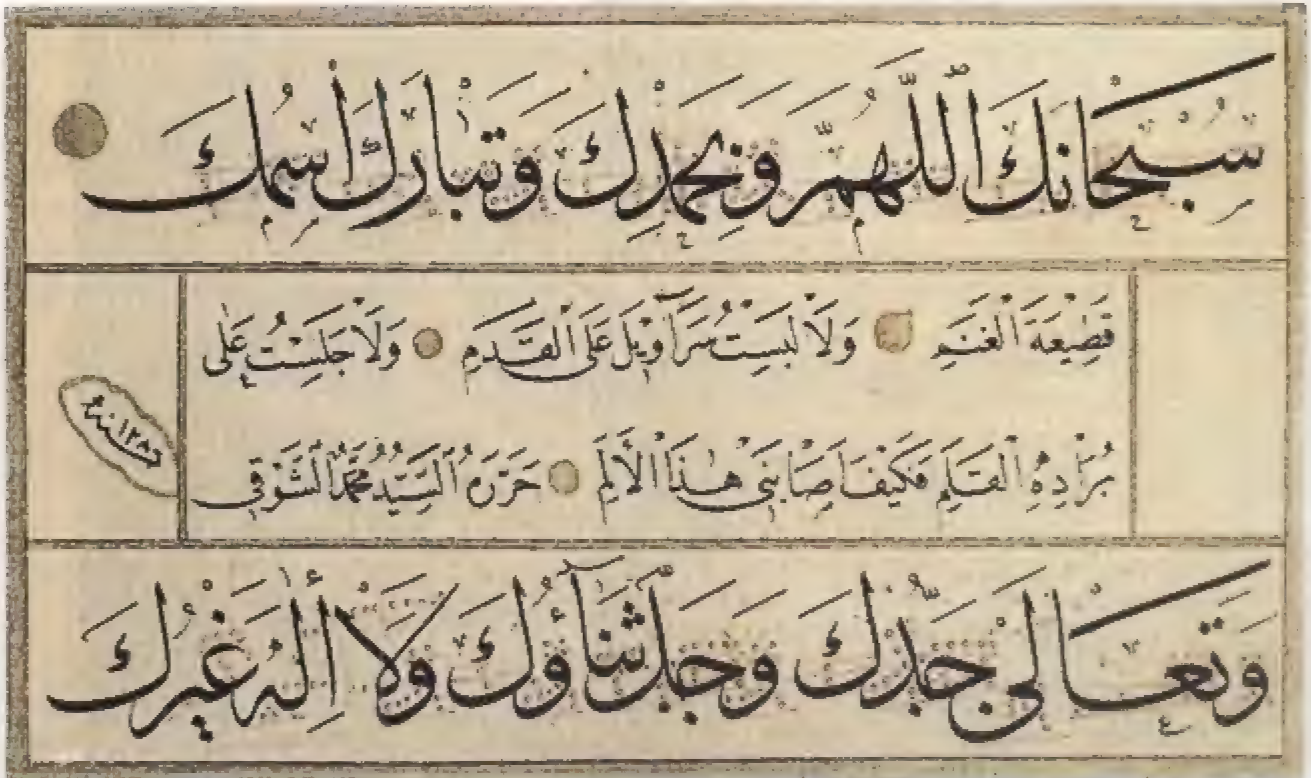 سُبْحَانَكَ اللّٰهُمَّ وَبِحَمْدِكَ وَتَبَارَكَ اسْمُكَ
قَطِيْعَةَ الْغَنَمِ وَلَا لَبِسْتُ سَرَاوِيْلَ عَلَى الْقَدَمِ وَلَا جَلَسْتُ عَلٰى
بُرَادِهِ الْقَلَمِ فَكَيْفَ اَصَابَنِىْ هٰذَا الْاَلَمِ حَرَّرَهُ السَّيِّدُ مُحَمَّدُ الشَّوْقِى
سنة ١٢٨٦
وَتَعَالٰى جَدُّكَ وَجَلَّ ثَنَاؤُكَ وَلَا اِلٰهَ غَيْرُكَ